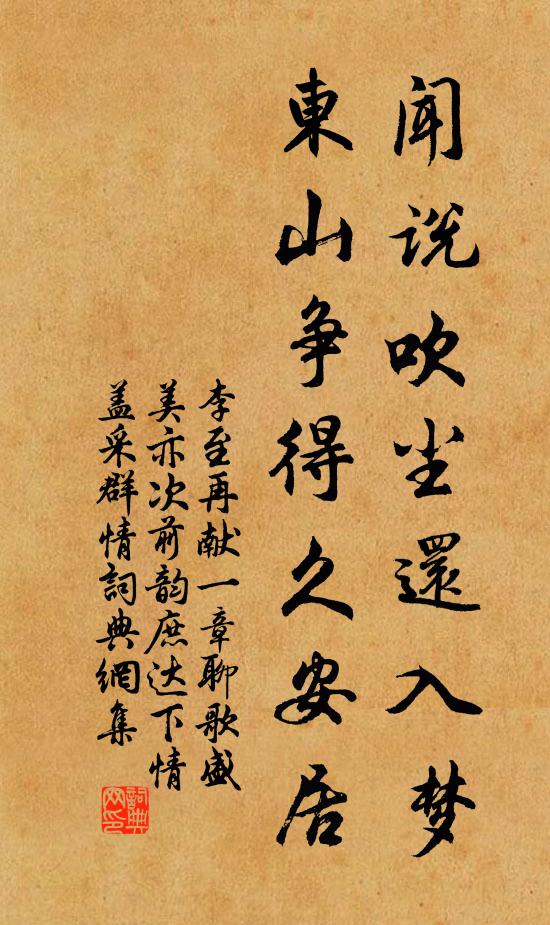 闻说吹尘還入梦
東山争得久安居
李至再献一章聊歌盛
美亦次前韵庶达下情
盖采群情詞典網集
詞典網印